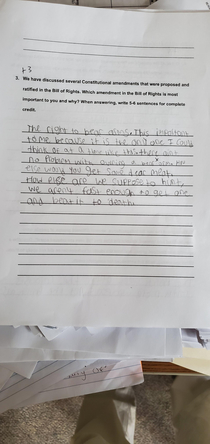 +3
3. We have discussed several Constitutional amendments that were proposed and
ratified in the Bill of Rights. Which amendment in the Bill of Rights is most
important to you and why? When answering, write 5-6 sentences for complete
credit.
The right to bear arms. This important
to me because it is the only one I could
think of at a time like this. there ain't
no problem with owning a
else would you get some dear meat.
How else are we suppose to hunt,
we arent fast enough to get one
and beat it to death.